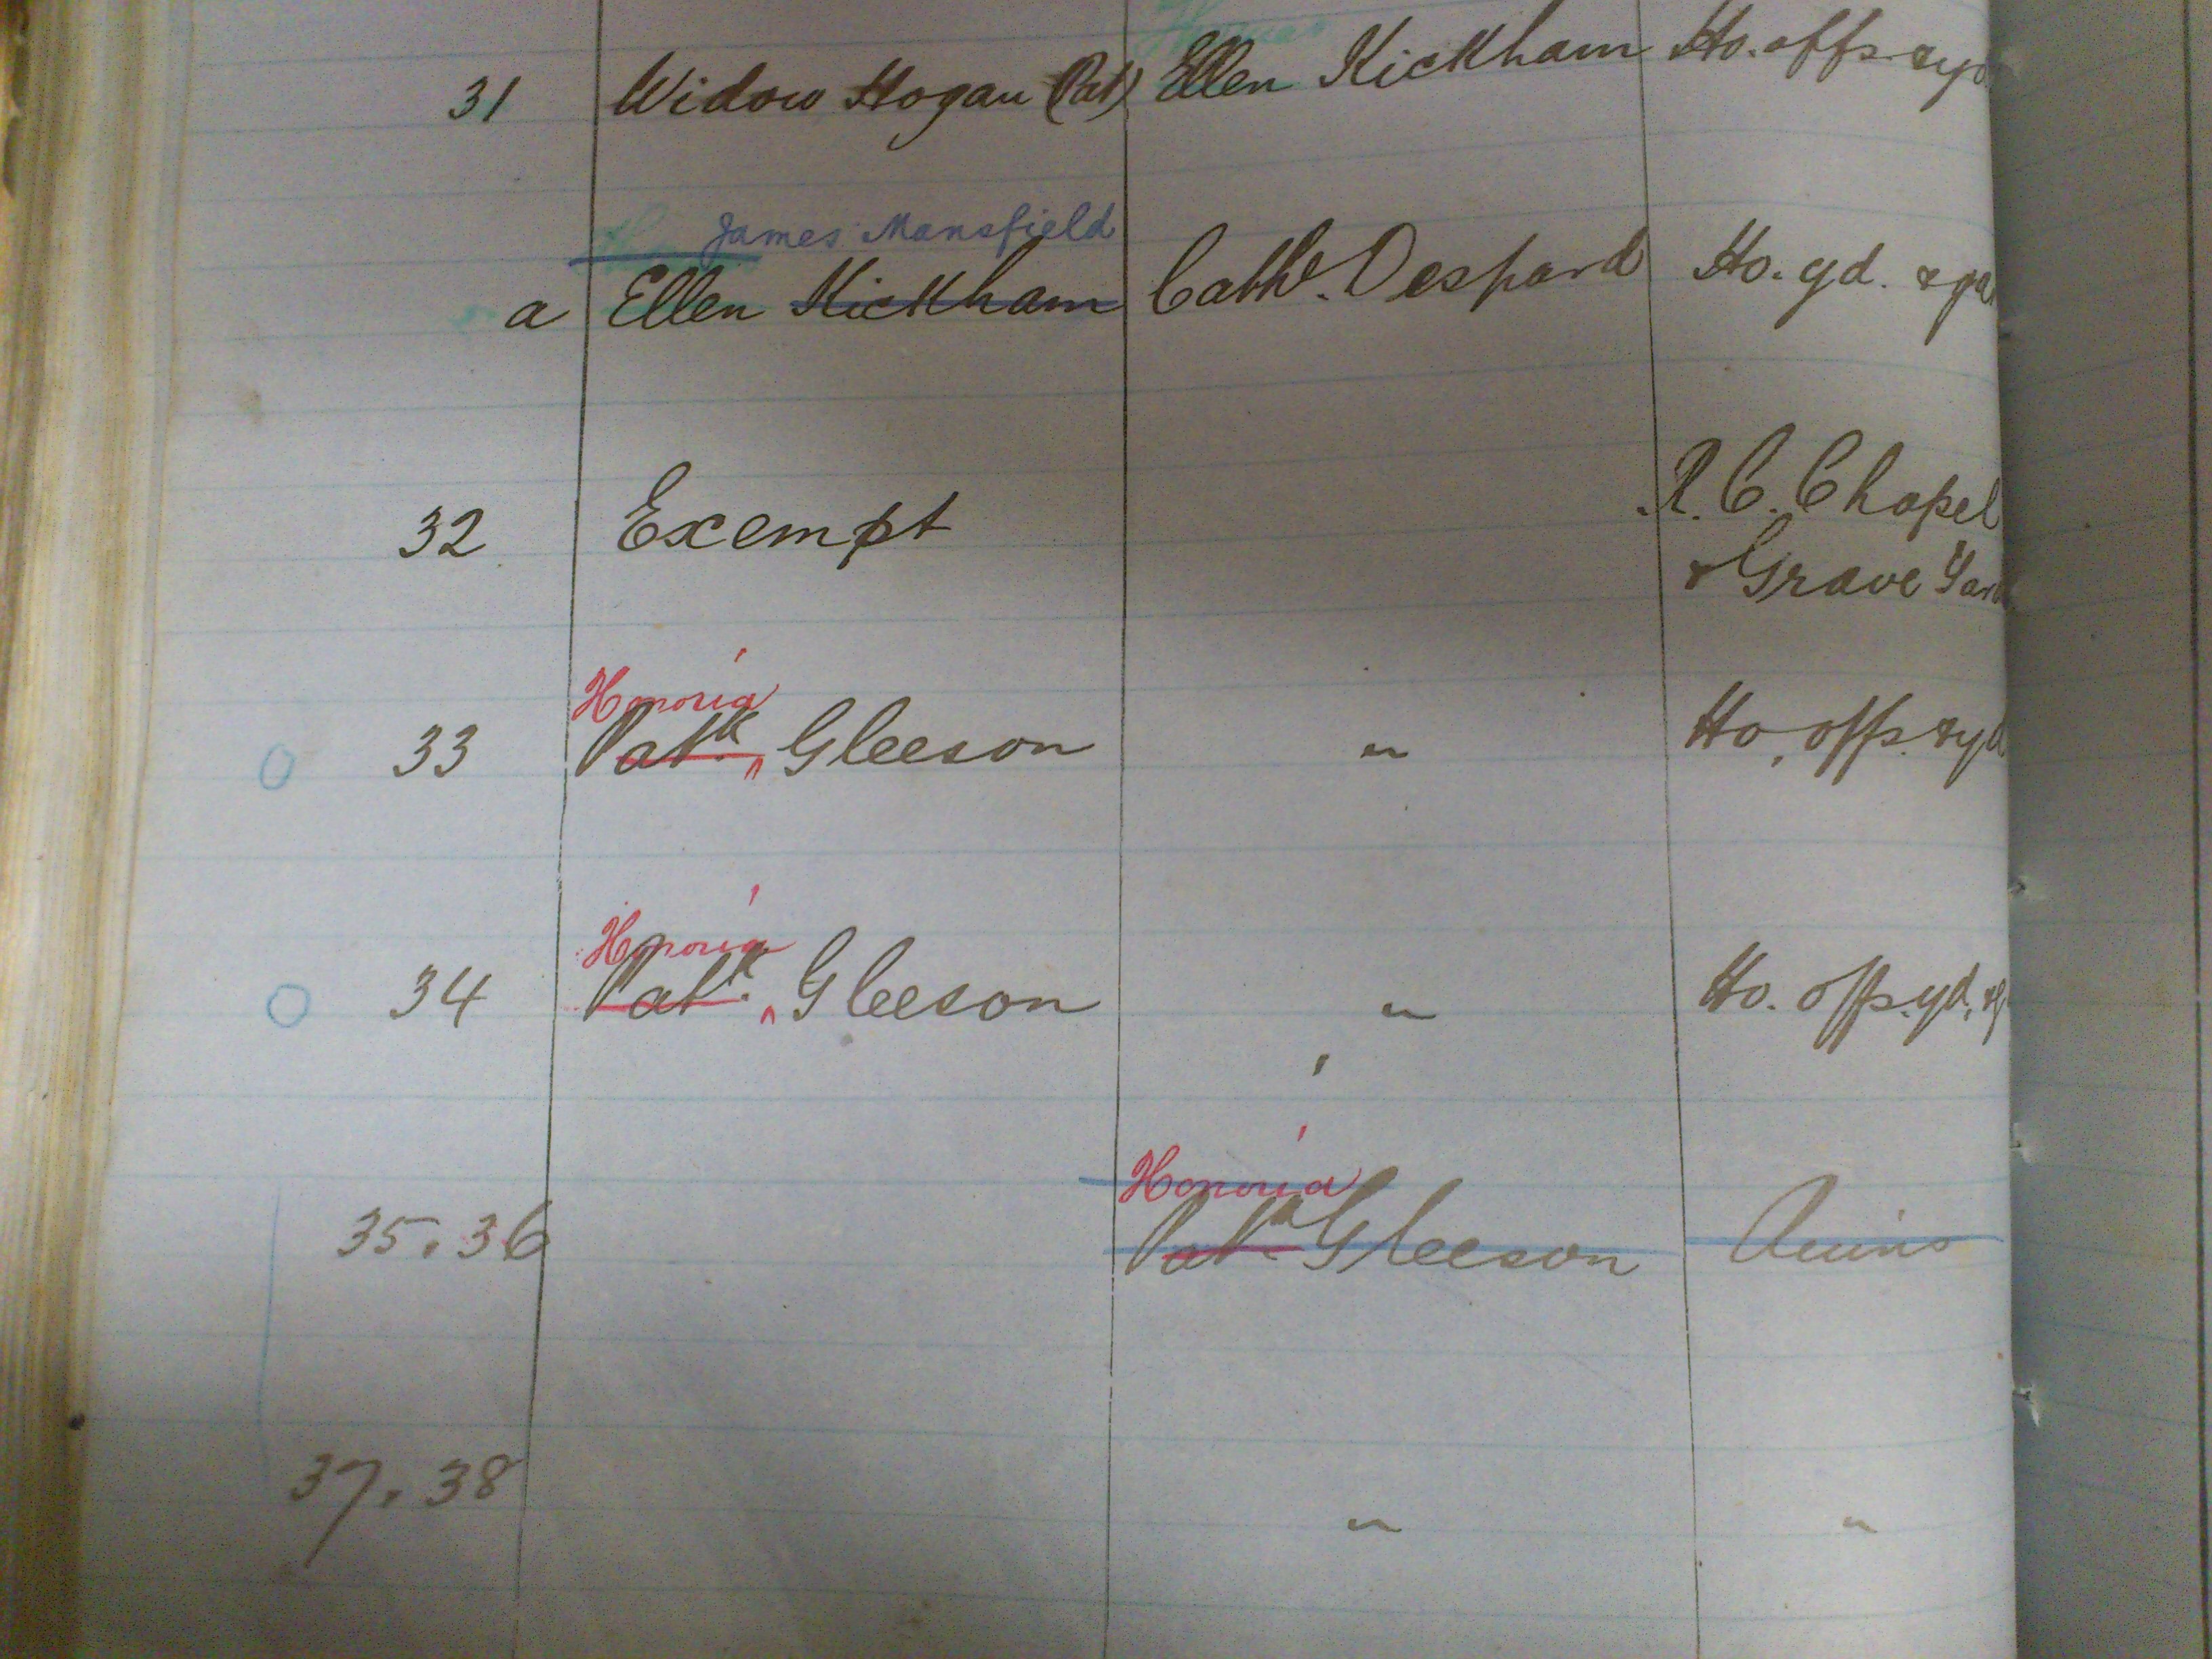 Thomas
31 Widow Hogan (Pat) Ellen Kickham Ho. offs & yd
James Mansfield
a Ellen Kickham Cathe. Despard Ho. yd. & ga
32 Exempt R. C. Chapel
& Grave Yard
Honoria
33 Patk. Gleeson " Ho, offs. & yd
Honoria
34 Patk. Gleeson " Ho. offs. yd. & g
Honoria
35. 36 Patk. Gleeson Ruins
37. 38 " "